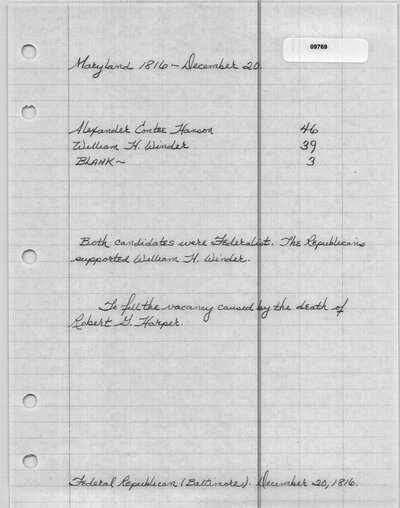 09769
Maryland 1816 - December 20.
Alexander Contee Hanson 46
William H. Winder 39
BLANK ~ 3
Both candidates were Federalist. The Republicans
supported William H. Winder.
To fill the vacancy caused by the death of
Robert G. Harper.
Federal Republican (Baltimore). December 20, 1816.